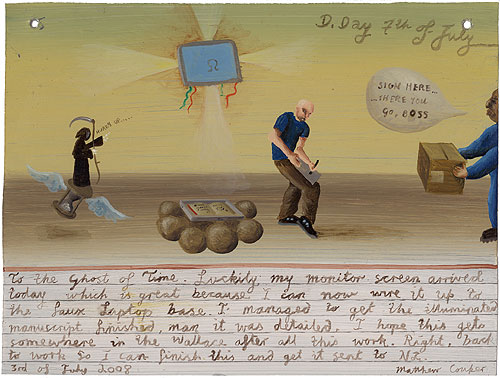 D. Day 7th of July
Ω
SIGN HERE...
...THERE YOU
GO, BOSS
To the Ghost of Time. Luckily my monitor screen arrived
today which is great because I can now wire it up to
the faux Laptop base. I managed to get the illuminated
manuscript finished, man it was detailed. I hope this gets
somewhere in the Wallace after all this work. Right, back
to work so I can finish this and get it sent to NZ.
3rd of July 2008
Matthew Couper